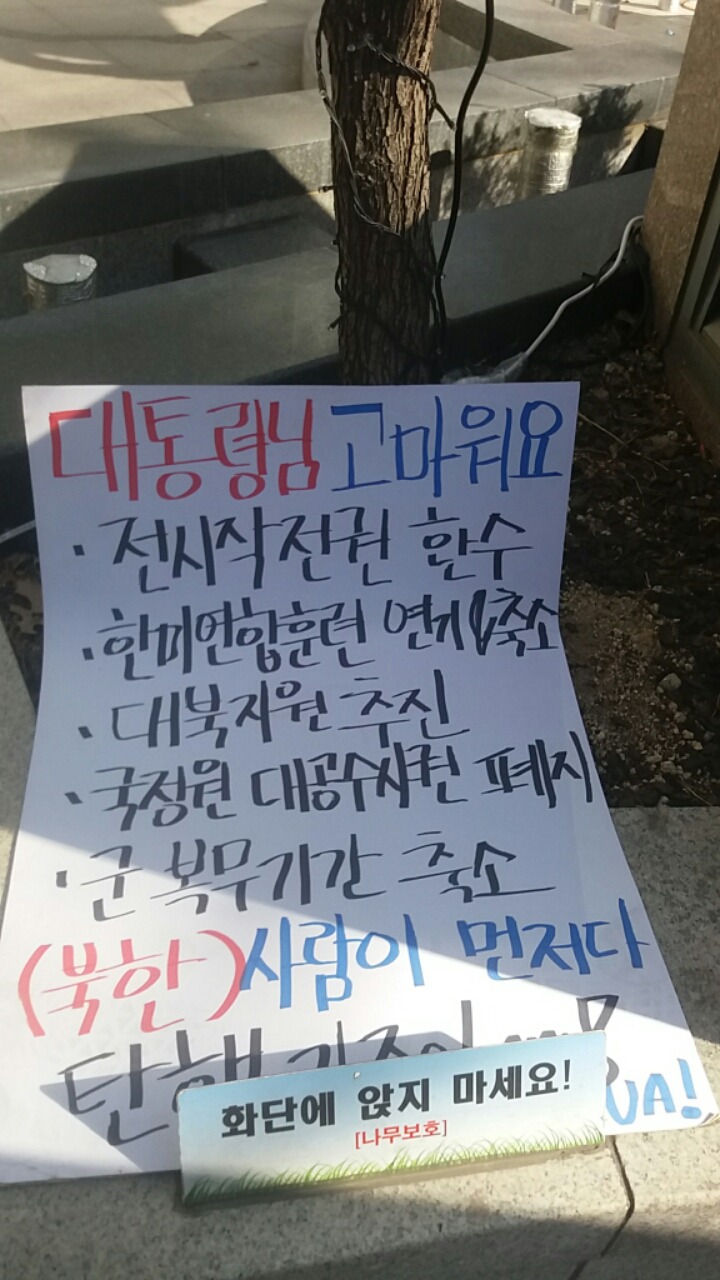 대통령님 고마워요
· 전시작전권 환수
· 한미연합훈련 연기 및 축소
· 대북지원 추진
· 국정원 대공수사권 폐지
· 군 복무기간 축소
(북한) 사람이 먼저다
탄핵
UA!
화단에 앉지 마세요!
[나무보호]